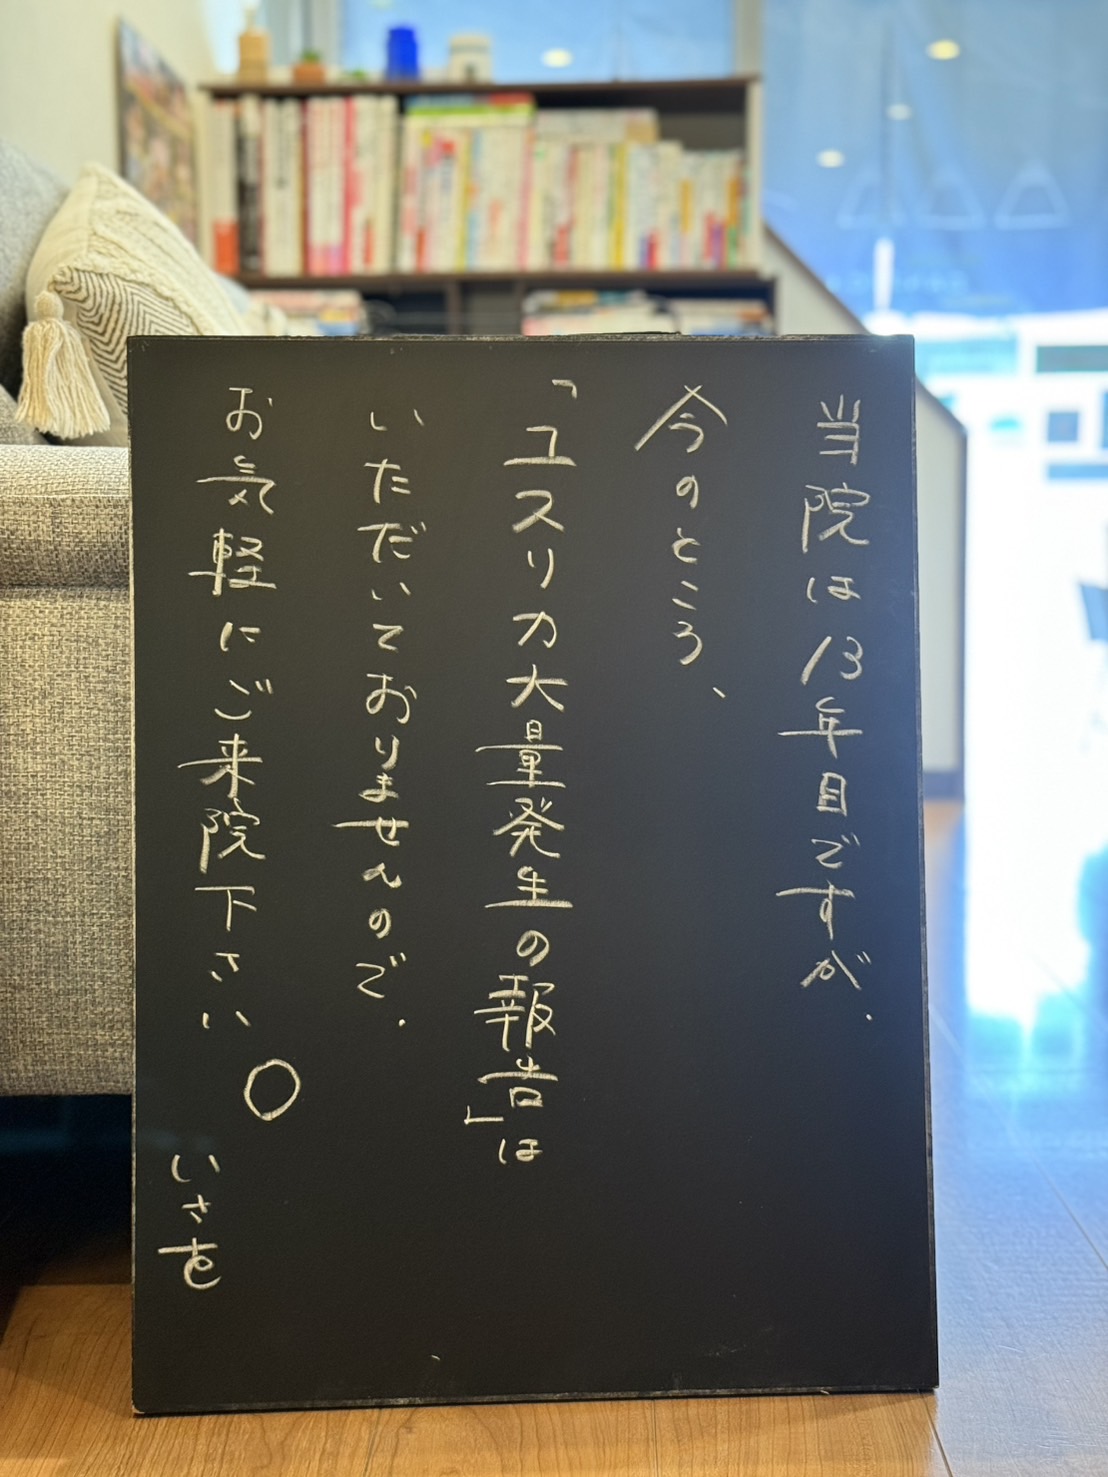 当院は13年目ですが、
今のところ、
「ユスリカ大量発生の報告」は
いただいておりませんので、
お気軽にご来院下さい○
いさを